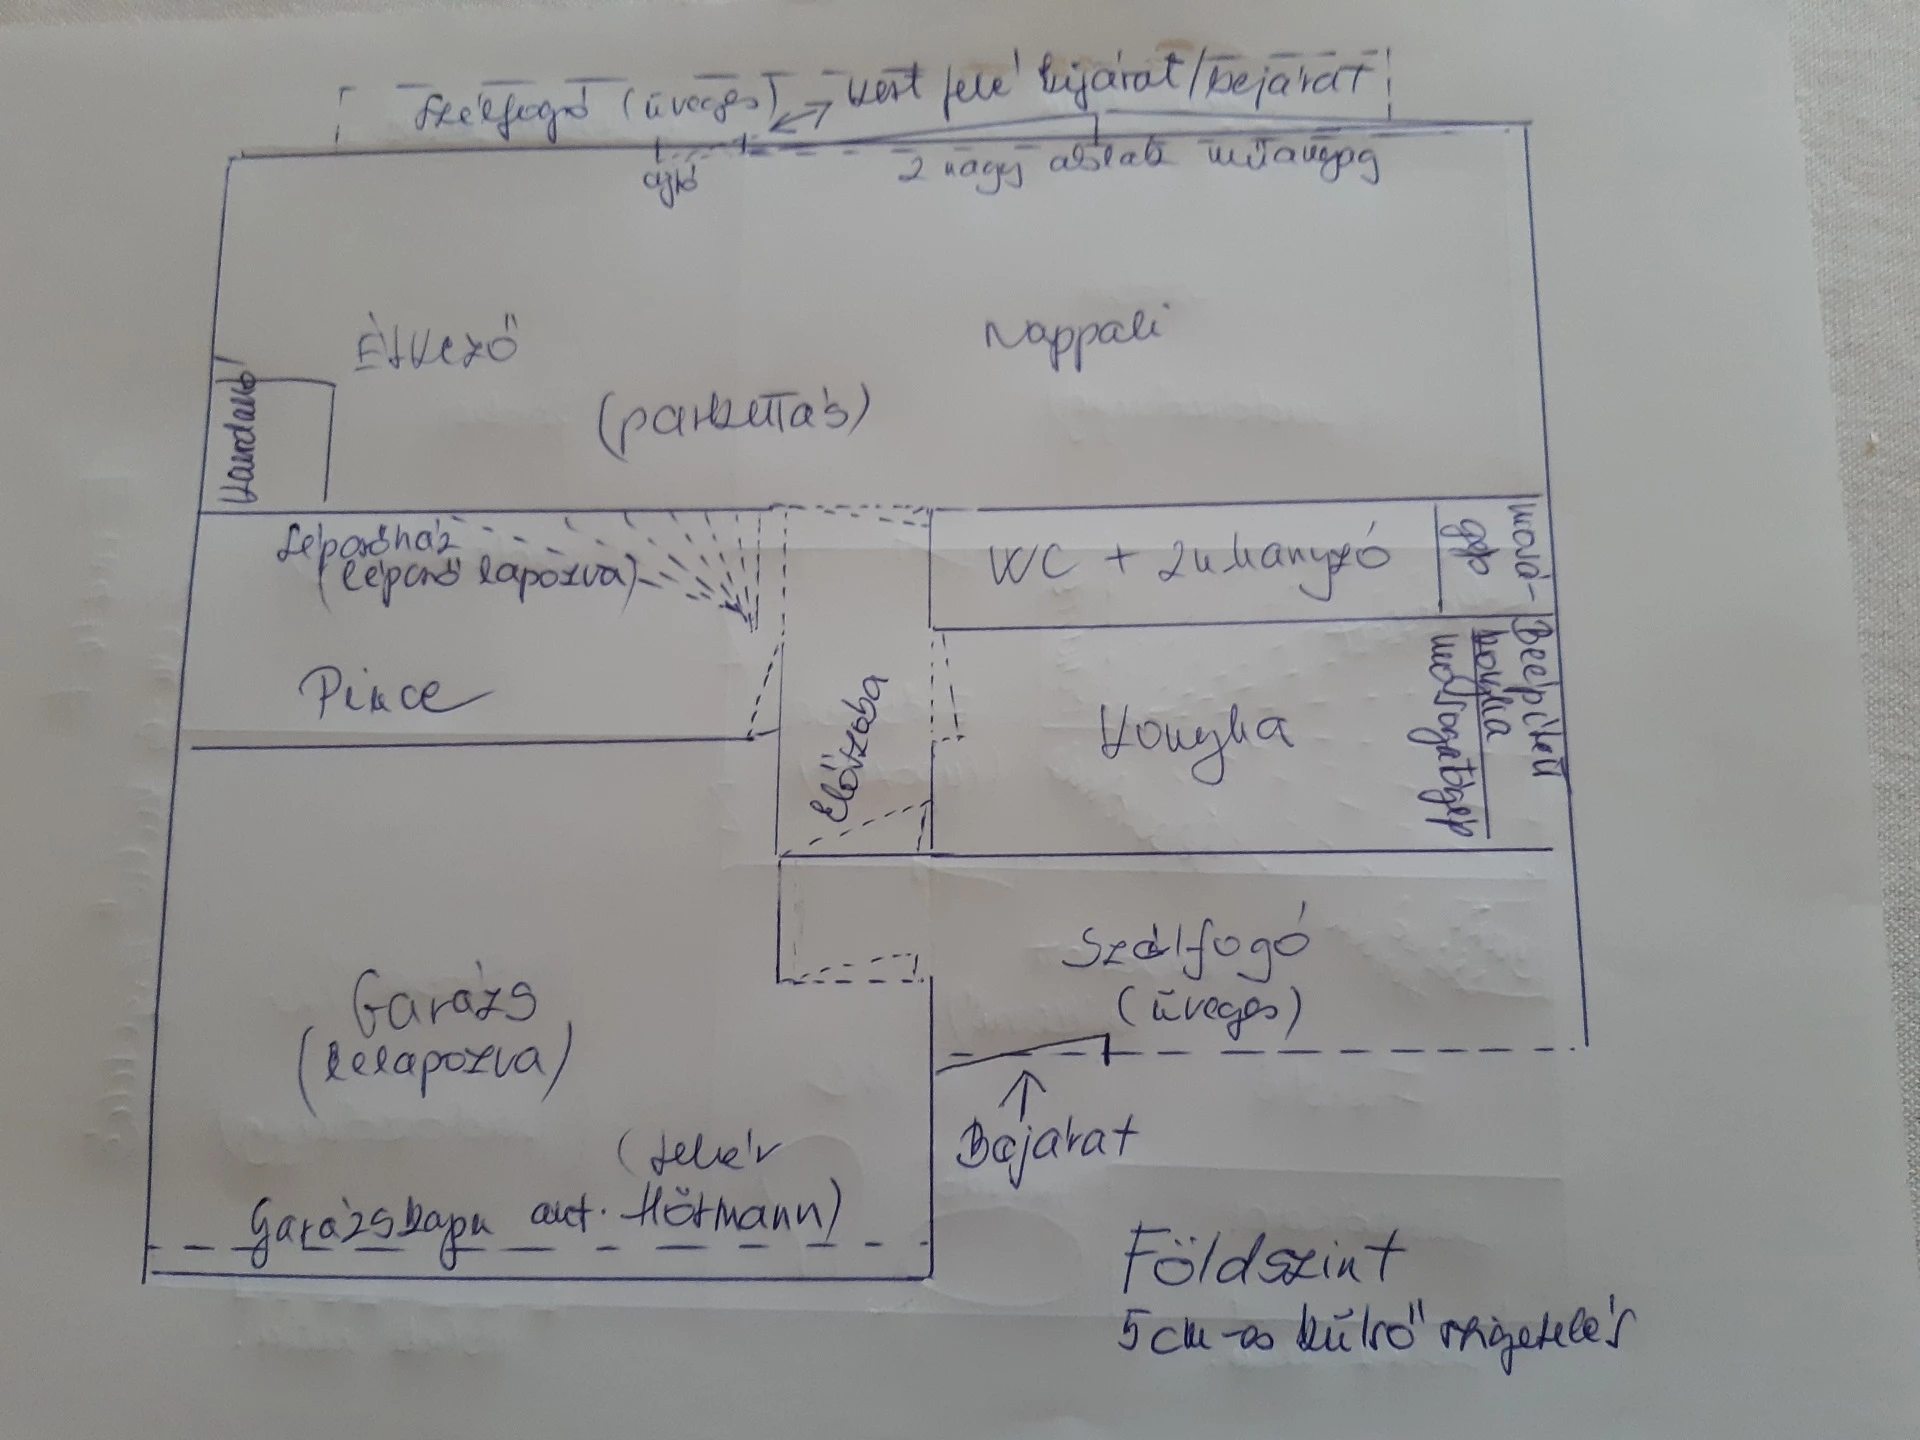 Szélfogó (üveges)
kert felé kijárat/bejárat
ajtó
2 nagy ablak műanyag
Étkező
Nappali
(parkettás)
Kandalló
Lépcsőház
(lépcső lapozva)
WC + zuhanyzó
mosó-
gép
Pince
Előszoba
Konyha
Beépített
konyha
mosogatógép
Szélfogó
(üveges)
Garázs
(lelapozva)
Bejárat
(fehér
Garázskapu aut. Hörmann)
Földszint
5cm-es külső szigetelés